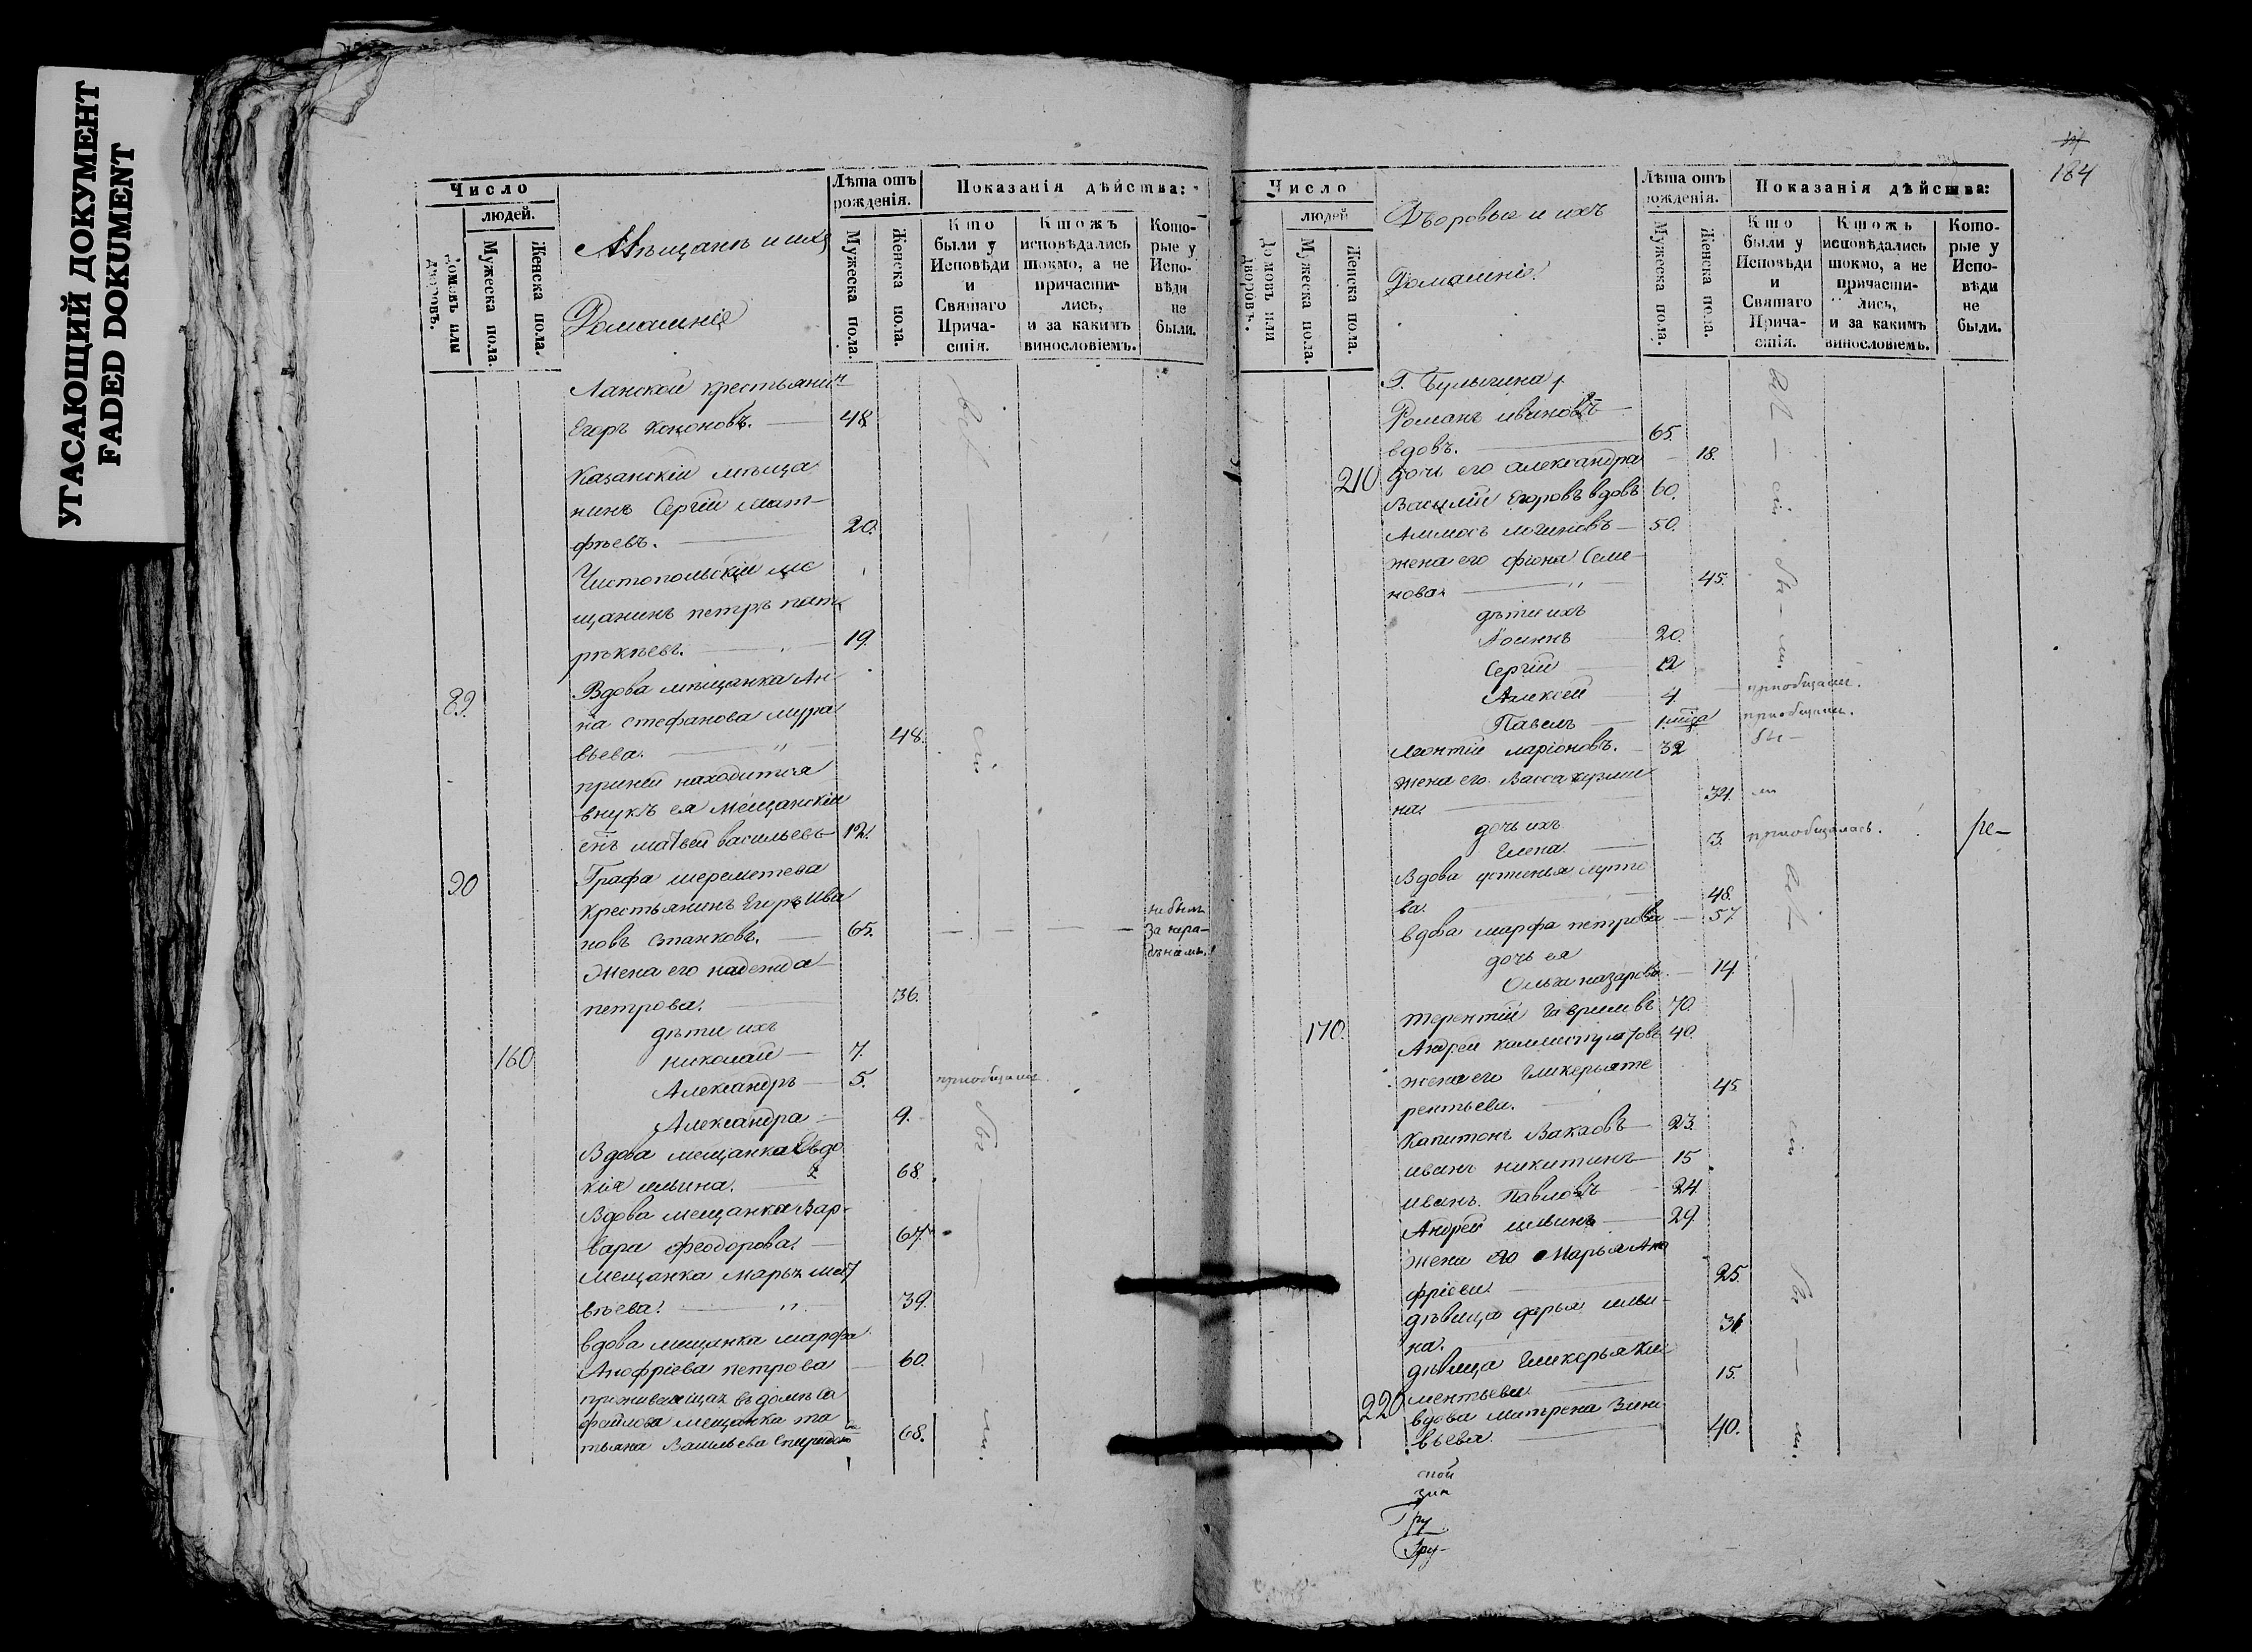 УГАСАЮЩИЙ ДОКУМЕНТ
FADED DOKUMENT
Число
людей.
домовъ или дворовъ.
Мужеска пола.
Женска пола.
Мѣщанъ и ихъ
Домашнiе
Лѣта отъ рожденiя.
Мужеска пола.
Женска пола.
Показанiя дѣйства:
Кто были у Исповѣди и Святаго Прича-стiя.
Ктожъ исповѣдались токмо, а не причасти-лись, и за какимъ винословiемъ.
Кото-рые у Испо-вѣди не были.
крестьянинъ
Егоръ Кононовъ. 48
Казанскiй мѣща
нинъ Сергiй Мат-
фѣевъ. 20.
Чистопольскiй ме
щанинъ петръ пат
рѣкѣевъ. 19.
89. Вдова мѣщанка Ан
на стефанова мура
вьева. 48.
при ней находится
внукъ ея мещанскiй
сынъ матвей васильевъ 12.
90 Графа шереметева
крестьянинъ Егоръ Ива
новъ 65. не былъ за нера-денiемъ.
Жена его надежда
петрова. 36.
дѣти ихъ
160 николай 7.
Александръ 5. приобщали.
Александра 9.
Вдова мещанка Евдо
кiя ильина. 68.
Вдова мещанка Вар-
вара Феодорова. 67.
Мещанка марья мат
вѣева. 39.
вдова мещанка марфа
Анофрiева петрова 60.
проживающая въ домѣ
мещанка та
тьяна Васильева 68.
184
Число
людей
Домовъ или дворовъ.
Мужеска пола.
Женска пола.
Дворовые и ихъ
Домашнiе.
Лѣта отъ рожденiя.
Мужеска пола.
Женска пола.
Показанiя дѣйства:
Кто были у Исповѣди и Святаго Прича-стiя.
Ктожъ исповѣдались токмо, а не причасти-лись, и за какимъ винословiемъ.
Кото-рые у Испо-вѣди не были.
Г. Булыгина
Романъ ивановъ
вдовъ. 65.
210 дочь его александра 18.
Василiй Егоровъ вдовъ 60.
логиновъ 50.
жена его Семе
нова 45.
дѣти ихъ
Iоаннъ 20.
Сергiй 12
Алексей 4. приобщали.
Павелъ 1. мѣца приобщали.
Леонтiй ларiоновъ. 32
жена его Васса кузми
на. 34.
дочь ихъ
Елена 3. приобщалась.
Вдова устинья
ва. 48.
вдова марфа петрова 57
дочь ея
Ольга назарова. 14.
терентiй Гавриловъ 70.
170. Андрей каллистратовъ 40.
жена его Гликерья те
рентьева. 45
Капитонъ Вакховъ 23.
иванъ никитинъ 15
иванъ Павловъ 24.
Андрей ильинъ 29.
жена его Марья Ано
фрiева. 25.
дѣвица дарья ильи-
на. 31
дѣвица Гликерья Кли
ментьева. 15.
220 вдова матрена Зино
вьева. 40.